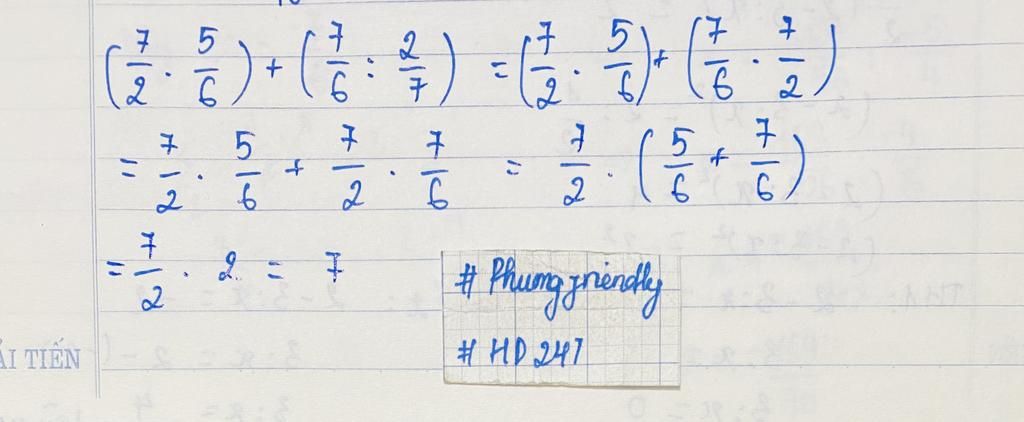 (7/2 . 5/6) + (7/6 : 2/7) = (7/2 . 5/6) + (7/6 . 7/2)
= 7/2 . 5/6 + 7/2 . 7/6 = 7/2 . (5/6 + 7/6)
= 7/2 . 2 = 7
# Phungfriendly
# HD247
ẢI TIẾN